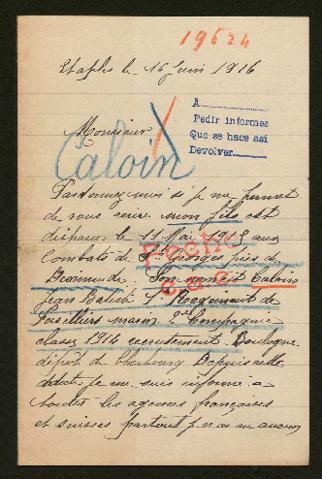 19624
Etaples le 16 Juin 1916
A
Pedir informes
Que se hace así
Devolver
Monsieur
Caloin
Pardonnez moi si je me permet
de vous écrire mon fils est
disparu le 11 Mai 1915 aux
Combats de St Georges près de
son nom est Caloin
Jean Batist 1er Regiment de
Fuselliers marin 2e Compagnie
classe 1914 recrutement Boulogne
dépôt de Cherbourg Depuis cette
date je me suis informé a
toutes les agences françaises
et suisses partout je n'ai eu aucun